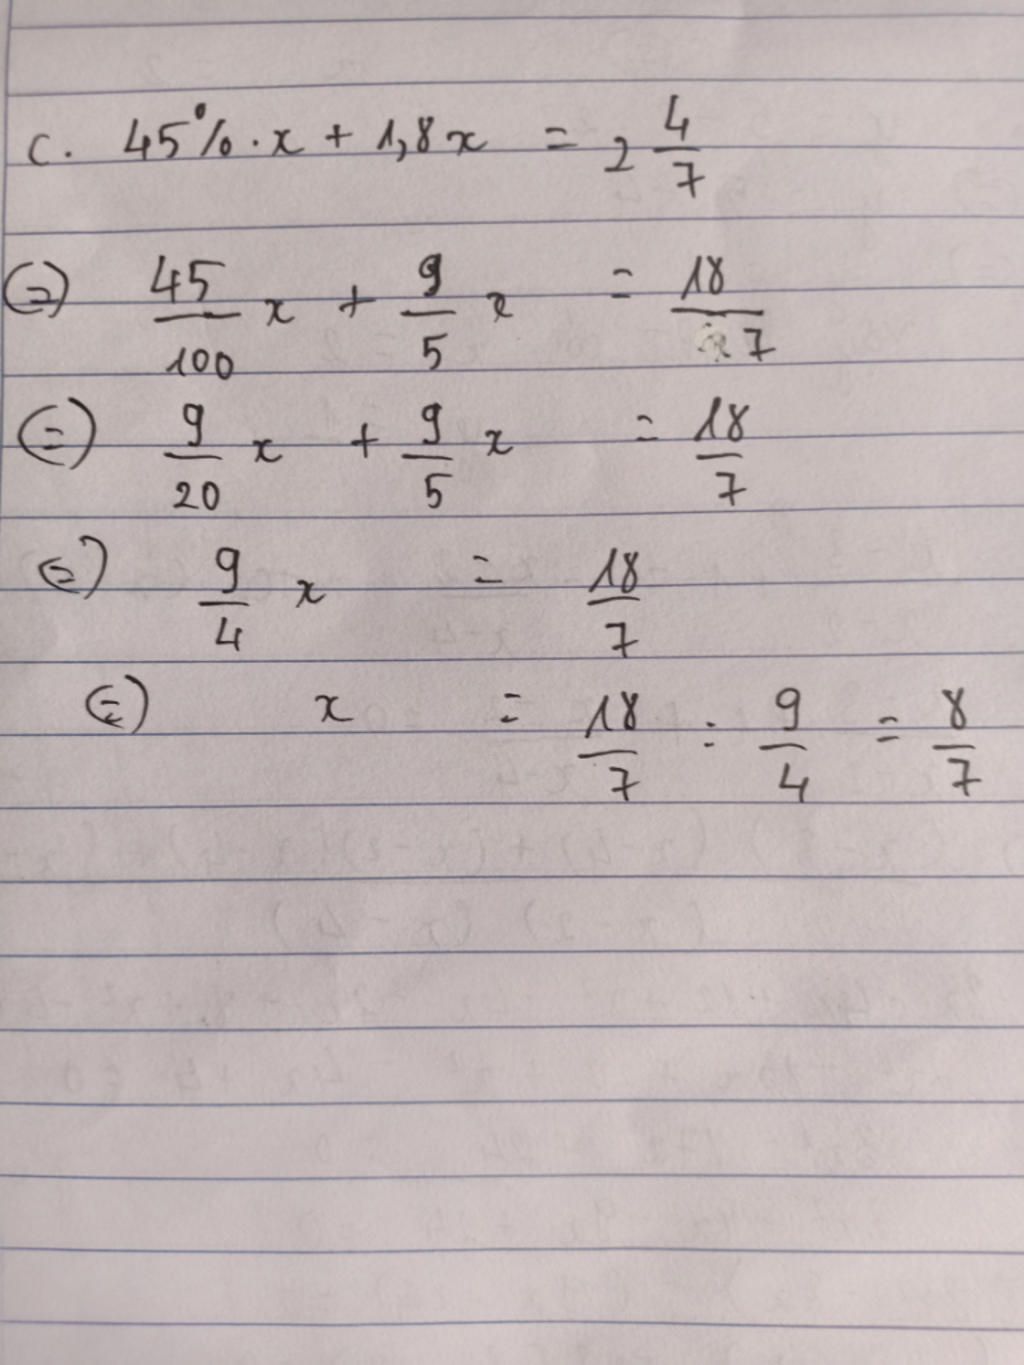 c. 45% . x + 1,8x = 2 4/7
(=) 45/100 x + 9/5 x = 18/7
(=) 9/20 x + 9/5 x = 18/7
(=) 9/4 x = 18/7
(=) x = 18/7 : 9/4 = 8/7